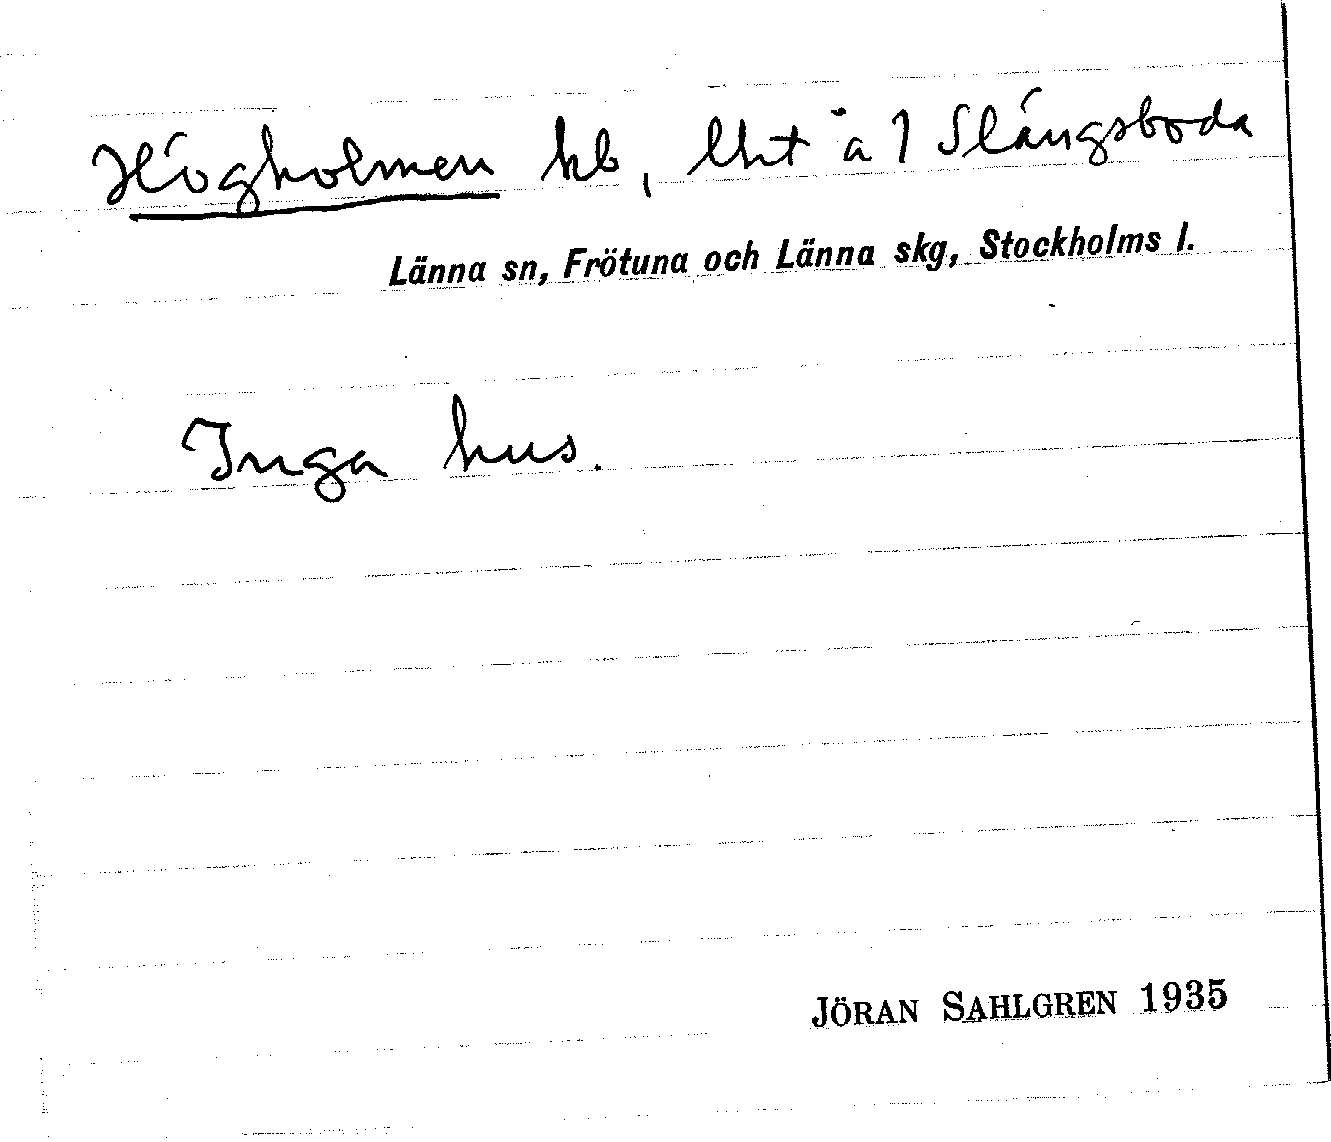 Högholmen hb, lht å 1 Slängsboda
Länna sn, Frötuna och Länna skg, Stockholms l.
Inga hus.
JÖRAN SAHLGREN 1935